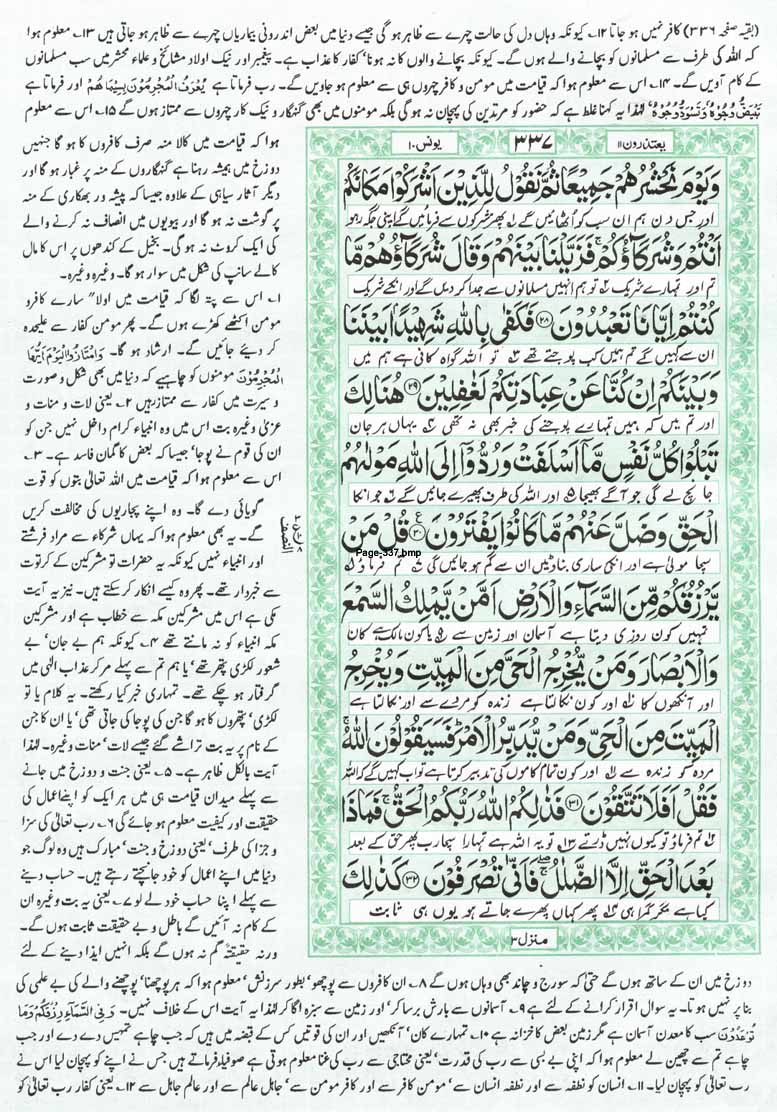 (بقیہ صفحہ ۳۳۶) کافر نہیں ہو جاتا ۱۲۔ کیونکہ وہاں دل کی حالت چہرے سے ظاہر ہو گی جیسے دنیا میں بعض اندرونی بیماریاں چہرے سے ظاہر ہو جاتی ہیں ۱۳۔ معلوم ہوا
کہ اللہ کی طرف سے مسلمانوں کو بچانے والے ہوں گے۔ کیونکہ بچانے والوں کا نہ ہونا' کفار کا عذاب ہے۔ پیغمبر اور نیک اولاد مشائخ و علماء محشر میں سب مسلمانوں
کے کام آویں گے۔ ۱۴۔ اس سے معلوم ہوا کہ قیامت میں مومن و کافر چہروں ہی سے معلوم ہو جاویں گے۔ رب فرماتا ہے یُعْرَفُ الْمُجْرِمُوْنَ بِسِیْمٰهُمْ اور فرماتا ہے
تَبْیَضُّ وُجُوْهٌ وَّتَسْوَدُّ وُجُوْهٌ' لہٰذا یہ کہنا غلط ہے کہ حضور کو مرتدین کی پہچان نہ ہو گی بلکہ مومنوں میں بھی گنہگار و نیک کار چہروں سے ممتاز ہوں گے ۱۵۔ اس سے معلوم
یعتذرون ۱۱
۳۳۷
یونس ۱۰
وَيَوْمَ نَحْشُرُهُمْ جَمِيْعًا ثُمَّ نَقُوْلُ لِلَّذِيْنَ اَشْرَكُوْا مَكَانَكُمْ
اور جس دن ہم ان سب کو اٹھائیں گے پھر مشرکوں سے فرمائیں گے اپنی جگہ رہو
اَنْتُمْ وَشُرَكَآؤُكُمْ ۚ فَزَيَّلْنَا بَيْنَهُمْ وَقَالَ شُرَكَآؤُهُمْ مَّا
تم اور تمہارے شریک تو ہم انہیں مسلمانوں سے جدا کر دیں گے اور انکے شریک
كُنْتُمْ اِيَّانَا تَعْبُدُوْنَ ۲۸ فَكَفٰى بِاللّٰهِ شَهِيْدًاۢ بَيْنَنَا
ان سے کہیں گے تم ہمیں کب پوجتے تھے تو اللہ گواہ کافی ہے ہم میں
وَبَيْنَكُمْ اِنْ كُنَّا عَنْ عِبَادَتِكُمْ لَغٰفِلِيْنَ ۲۹ هُنَالِكَ
اور تم میں کہ ہمیں تمہارے پوجنے کی خبر بھی نہ تھی یہاں ہر جان
تَبْلُوْا كُلُّ نَفْسٍ مَّآ اَسْلَفَتْ وَرُدُّوْٓا اِلَى اللّٰهِ مَوْلٰىهُمُ
جانچ لے گی جو آگے بھیجا اور اللہ کی طرف پھیرے جائیں گے جو انکا
الْحَقِّ وَضَلَّ عَنْهُمْ مَّا كَانُوْا يَفْتَرُوْنَ ۳۰ قُلْ مَنْ
سچا مولیٰ ہے اور انکی ساری بناوٹیں ان سے گم ہو جائیں گی تم فرماؤ
Page-337.bmp
يَّرْزُقُكُمْ مِّنَ السَّمَآءِ وَالْاَرْضِ اَمَّنْ يَّمْلِكُ السَّمْعَ
تمہیں کون روزی دیتا ہے آسمان اور زمین سے یا کون مالک ہے کان
وَالْاَبْصَارَ وَمَنْ يُّخْرِجُ الْحَيَّ مِنَ الْمَيِّتِ وَيُخْرِجُ
اور آنکھوں کا اور کون نکالتا ہے زندہ کو مردے سے اور نکالتا ہے
الْمَيِّتَ مِنَ الْحَيِّ وَمَنْ يُّدَبِّرُ الْاَمْرَ ۭ فَسَيَقُوْلُوْنَ اللّٰهُ ۚ
مردہ کو زندہ سے اور کون تمام کاموں کی تدبیر کرتا ہے تو اب کہیں گے کہ اللہ
فَقُلْ اَفَلَا تَتَّقُوْنَ ۳۱ فَذٰلِكُمُ اللّٰهُ رَبُّكُمُ الْحَقُّ ۚ فَمَاذَا
تم فرماؤ تو کیوں نہیں ڈرتے تو یہ اللہ ہے تمہارا سچا رب پھر حق کے بعد
بَعْدَ الْحَقِّ اِلَّا الضَّلٰلُ ۖ فَاَنّٰى تُصْرَفُوْنَ ۳۲ كَذٰلِكَ
کیا ہے مگر گمراہی پھر کہاں پھرے جاتے ہو یوں ہی ثابت
منزل ۳
ہوا کہ قیامت میں کالا منہ صرف کافروں کا ہو گا جنہیں
دوزخ میں ہمیشہ رہنا ہے گنہگاروں کے منہ پر غبار ہو گا اور
دیگر آثار سیاہی کے علاوہ جیسا کہ پیشہ ور بھکاری کے منہ
پر گوشت نہ ہو گا اور بیویوں میں انصاف نہ کرنے والے
کی ایک کروٹ نہ ہو گی۔ بخیل کے کندھوں پر اس کا مال
کالے سانپ کی شکل میں سوار ہو گا۔ وغیرہ وغیرہ۔
۱۔ اس سے پتہ لگا کہ قیامت میں اولاً" سارے کافر و
مومن اکٹھے کھڑے ہوں گے۔ پھر مومن کفار سے علیحدہ
کر دیئے جائیں گے۔ ارشاد ہو گا۔ وَامْتَازُوا الْیَوْمَ اَیُّهَا
الْمُجْرِمُوْنَ مومنوں کو چاہیے کہ دنیا میں بھی شکل و صورت
و سیرت میں کفار سے ممتاز رہیں ۲۔ یعنی لات و منات و
عزیٰ وغیرہ بت اس میں وہ انبیاء کرام داخل نہیں جن کو
ان کی قوم نے پوجا' جیسا کہ بعض کا گمان فاسد ہے۔ ۳۔
اس سے معلوم ہوا کہ قیامت میں اللہ تعالیٰ بتوں کو قوت
گویائی دے گا۔ وہ اپنے پجاریوں کی مخالفت کریں
گے۔ یہ بھی معلوم ہوا کہ یہاں شرکاء سے مراد فرشتے
النصف
اور انبیاء نہیں کیونکہ یہ حضرات تو مشرکین کے کرتوت
سے خبردار تھے۔ پھر وہ کیسے انکار کر سکتے ہیں۔ نیز یہ آیت
مکی ہے اس میں مشرکین مکہ سے خطاب ہے اور مشرکین
مکہ انبیاء کو نہ مانتے تھے ۴۔ کیونکہ ہم بے جان' بے
شعور لکڑی پتھر تھے' یا ہم تم سے پہلے مر کر عذاب الٰہی میں
گرفتار ہو چکے تھے۔ تمہاری خبر کیا رکھتے۔ یہ کلام یا تو
لکڑی' پتھروں کا ہو گا جن کی پوجا کی جاتی تھی' یا ان کا جن
کے نام پر یہ بت تراشے گئے جیسے لات' منات وغیرہ۔ لہٰذا
آیت بالکل ظاہر ہے۔ ۵۔ یعنی جنت و دوزخ میں جانے
سے پہلے میدان قیامت ہی میں ہر ایک کو اپنے اعمال کی
حقیقت اور کیفیت معلوم ہو جائے گی ۶۔ رب تعالیٰ کی سزا
و جزا کی طرف' یعنی دوزخ و جنت' مبارک ہیں وہ لوگ جو
دنیا میں اپنے اعمال کو خود جانچتے رہتے ہیں۔ حساب دینے
سے پہلے اپنا حساب خود لے لو ۷۔ یعنی یہ بت وغیرہ ان
کے کام نہ آئیں گے باطل و بے حقیقت ثابت ہوں گے۔
ورنہ حقیقۃً گم نہ ہوں گے بلکہ انہیں ایذا دینے کے لئے
دوزخ میں ان کے ساتھ ہوں گے حتیٰ کہ سورج و چاند بھی وہاں ہوں گے ۸۔ ان کافروں سے پوچھو' بطور سرزنش' معلوم ہوا کہ ہر پوچھنا' پوچھنے والے کی بے علمی کی
بنا پر نہیں ہوتا۔ یہ سوال اقرار کرانے کے لئے ہے ۹۔ آسمانوں سے بارش برسا کر' اور زمین سے سبزہ اگا کر لہٰذا یہ آیت اس کے خلاف نہیں۔ وَفِی السَّمَآءِ رِزْقُكُمْ وَمَا
تُوْعَدُوْنَ سب کا معدن آسمان ہے مگر زمین بعض کا خزانہ ہے ۱۰۔ تمہارے کان' آنکھیں اور ان کی قوتیں کس کے قبضہ میں ہیں کہ جب چاہے تمہیں دے دے اور جب
چاہے تم سے چھین لے معلوم ہوا کہ اپنی بے بسی سے رب کی قدرت' یعنی محتاجی سے رب کی غنا معلوم ہوتی ہے صوفیا فرماتے ہیں جس نے اپنے کو پہچان لیا اس نے
رب تعالیٰ کو پہچان لیا۔ ۱۱۔ انسان کو نطفہ سے اور نطفہ انسان سے' مومن کافر سے اور کافر مومن سے' جاہل عالم سے اور عالم جاہل سے ۱۲۔ یعنی کفار رب تعالیٰ کو